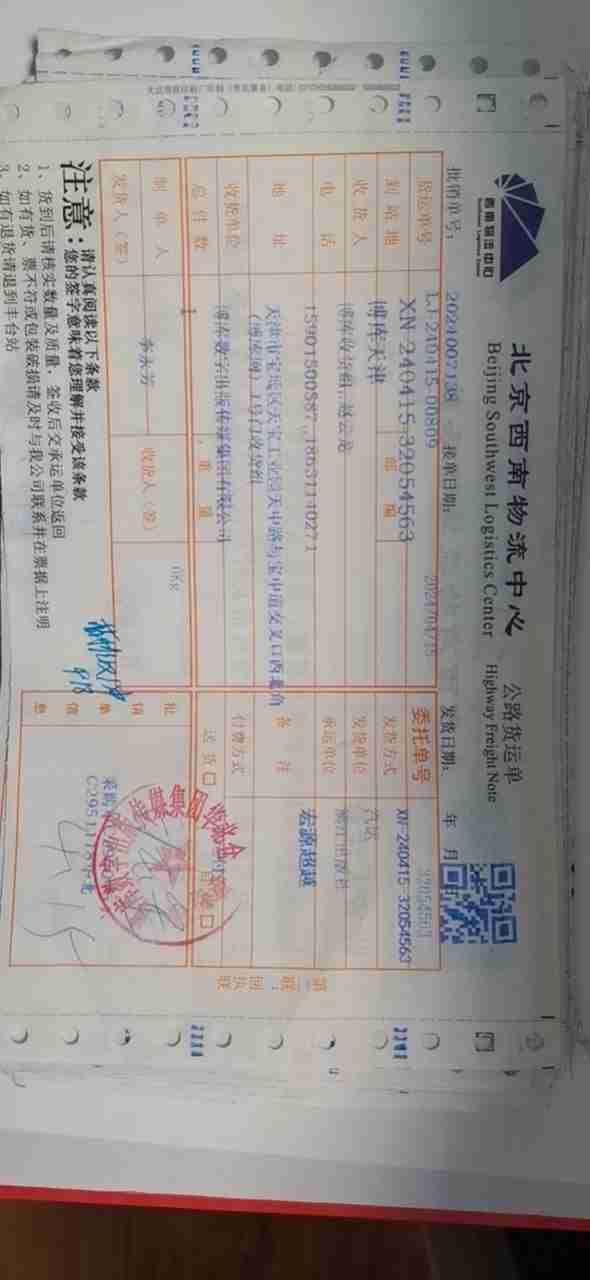 西南物流中心
Southwest Logistics Center
北京西南物流中心
Beijing Southwest Logistics Center
公路货运单
Highway Freight Note
批销单号：
2024007138
接单日期：
2024/04/15
发货日期：
年 月
货运单号
LJ-240415-00809
委托单号
32054563
XN-240415-32054563
XN-240415-32054563
到站地
博库天津
部 编
发货方式
汽运
收货人
发货单位
浙江出版社
电 话
15901500587
承运单位
宏源超越
地 址
天津市宝坻区天宝工业园天中路与宝中道交叉口西北角
(博库网) 1号门收货组
备 注
收货单位
博库数字出版传媒集团有限公司
付费方式
总件数
1
重 量
0Kg
送 货 □
自 提 □
制 单 人
李永芳
收货人（签）
发货人（签）
批 销 单 信 息
第二联：回执联
9/8
注意：
请认真阅读以下条款
您的签字意味着您理解并接受该条款
1、货到后请核实数量及质量，签收后交承运单位返回
2、如有货、票不符或包装破损请及时与我公司联系并在票据上注明
3、如有退货请退到丰台站